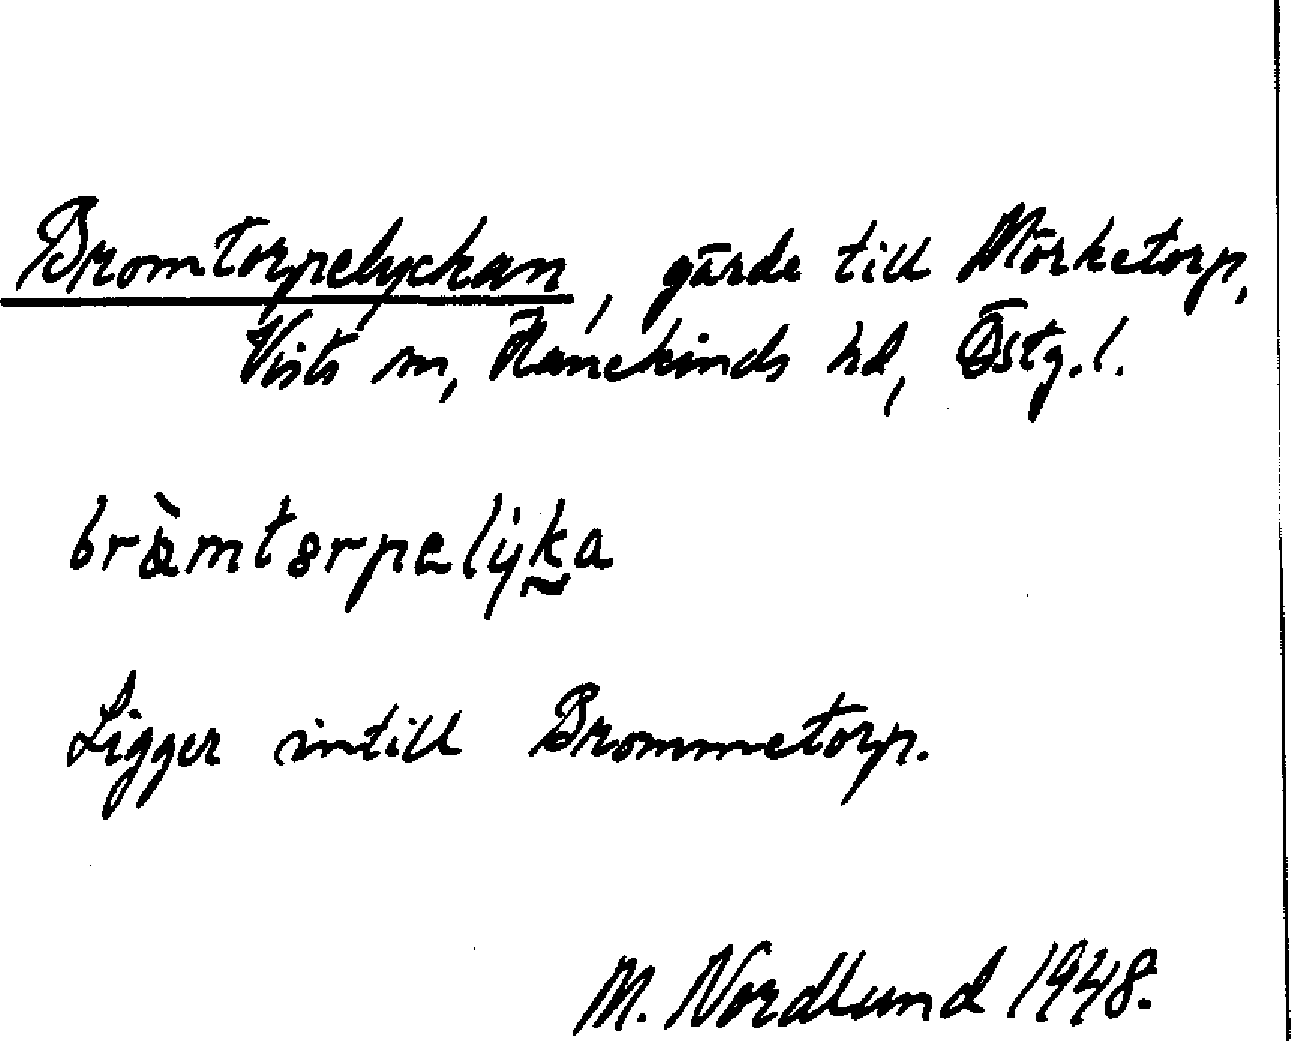 Bromtorpelyckan, gärde till Mörketorp,
Vists sn, Hanekinds hd, Östg. l.
Ligger intill Brommetorp.
M. Nordlund 1948.